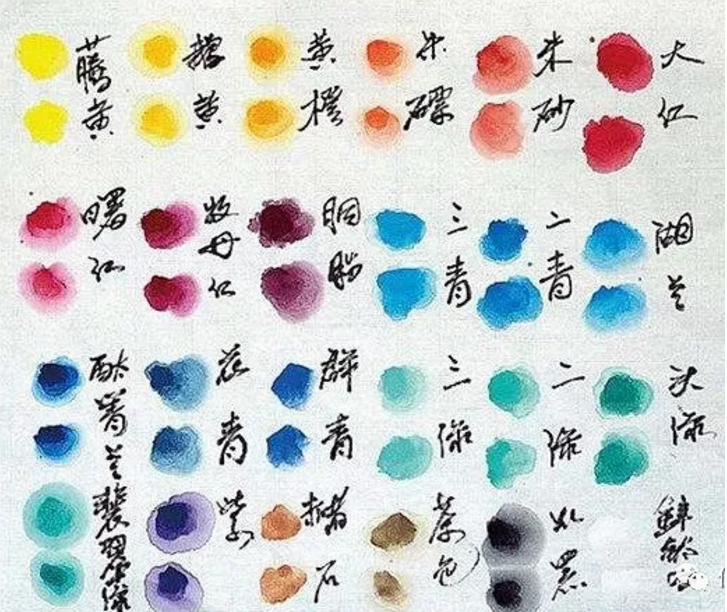 藤黄
藤黄
黄橙
朱磦
朱砂
大红
曙红
牧丹红
胭脂
三青
二青
湖兰
酞菁兰
花青
群青
三绿
二绿
头绿
翡翠绿
紫
赭石
茶色